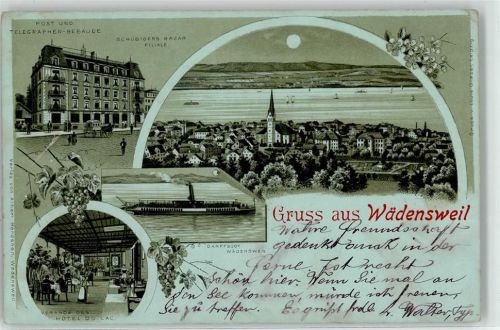 POST UND
TELEGRAPHEN-GEBÄUDE
SCHÜBIGERS BAZAR
FILIALE
DAMPFBOOT
WÄDENSWEIL
VERANDA DES
HOTEL DU LAC.
Gruss aus Wädensweil
Wahre Freundschaft
gedenkt auch in der
Ferne. Ist recht
schön hier. Wenn Sie mal an
den See kommen, würde ich freuen,
Sie zu treffen. Es grüßt frdl.
Walter